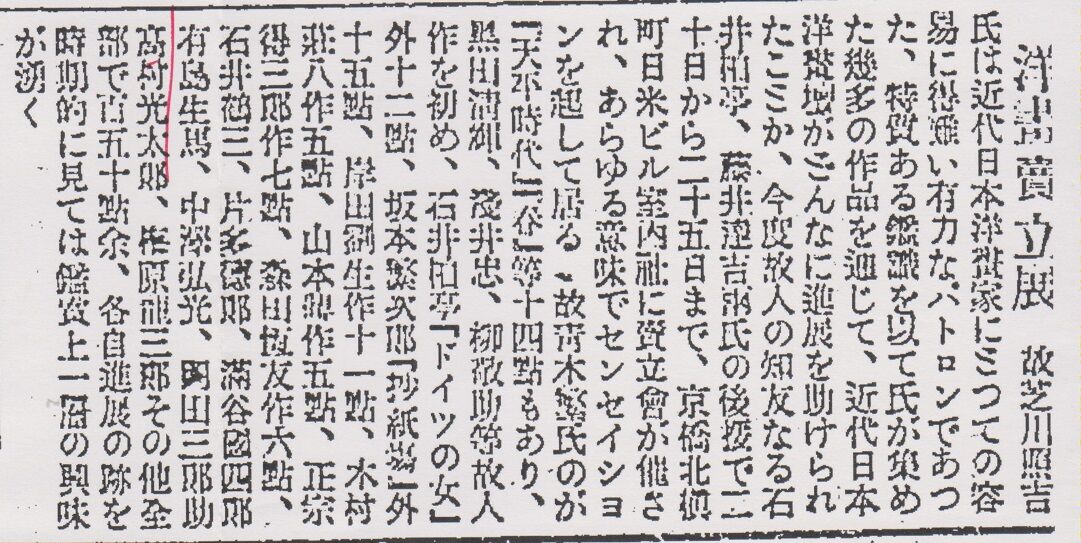 洋畫賣立展　故芝川照吉
氏は近代日本洋畫家にとつての容
易に得難い有力なパトロンであつ
た、特質ある鑑識を以て氏が集め
た幾多の作品を通じて、近代日本
洋畫壇がどんなに進展を助けられ
たことか、今度故人の知友なる石
井柏亭、藤井達吉兩氏の後援で二
十日から二十五日まで、京橋北槇
町日米ビル室内社に賣立會が催さ
れ、あらゆる意味でセンセイショ
ンを起して居る　故靑木繁氏のが
「天平時代」「谷」等十四點もあり、
黑田淸輝、淺井忠、柳敬助等故人
作を初め、石井柏亭「ドイツの女」
外十二點、坂本繁次郎「抄紙場」外
十五點、岸田劉生作十一點、木村
莊八作五點、山本鼎作五點、正宗
得三郎作七點、森田恆友作六點、
石井鶴三、片多德郎、滿谷國四郎
有島生馬、中澤弘光、岡田三郎助
髙村光太郎、梅原龍三郎その他全
部で百五十點余、各自進展の跡を
時期的に見ては鑑賞上一層の興味
が湧く